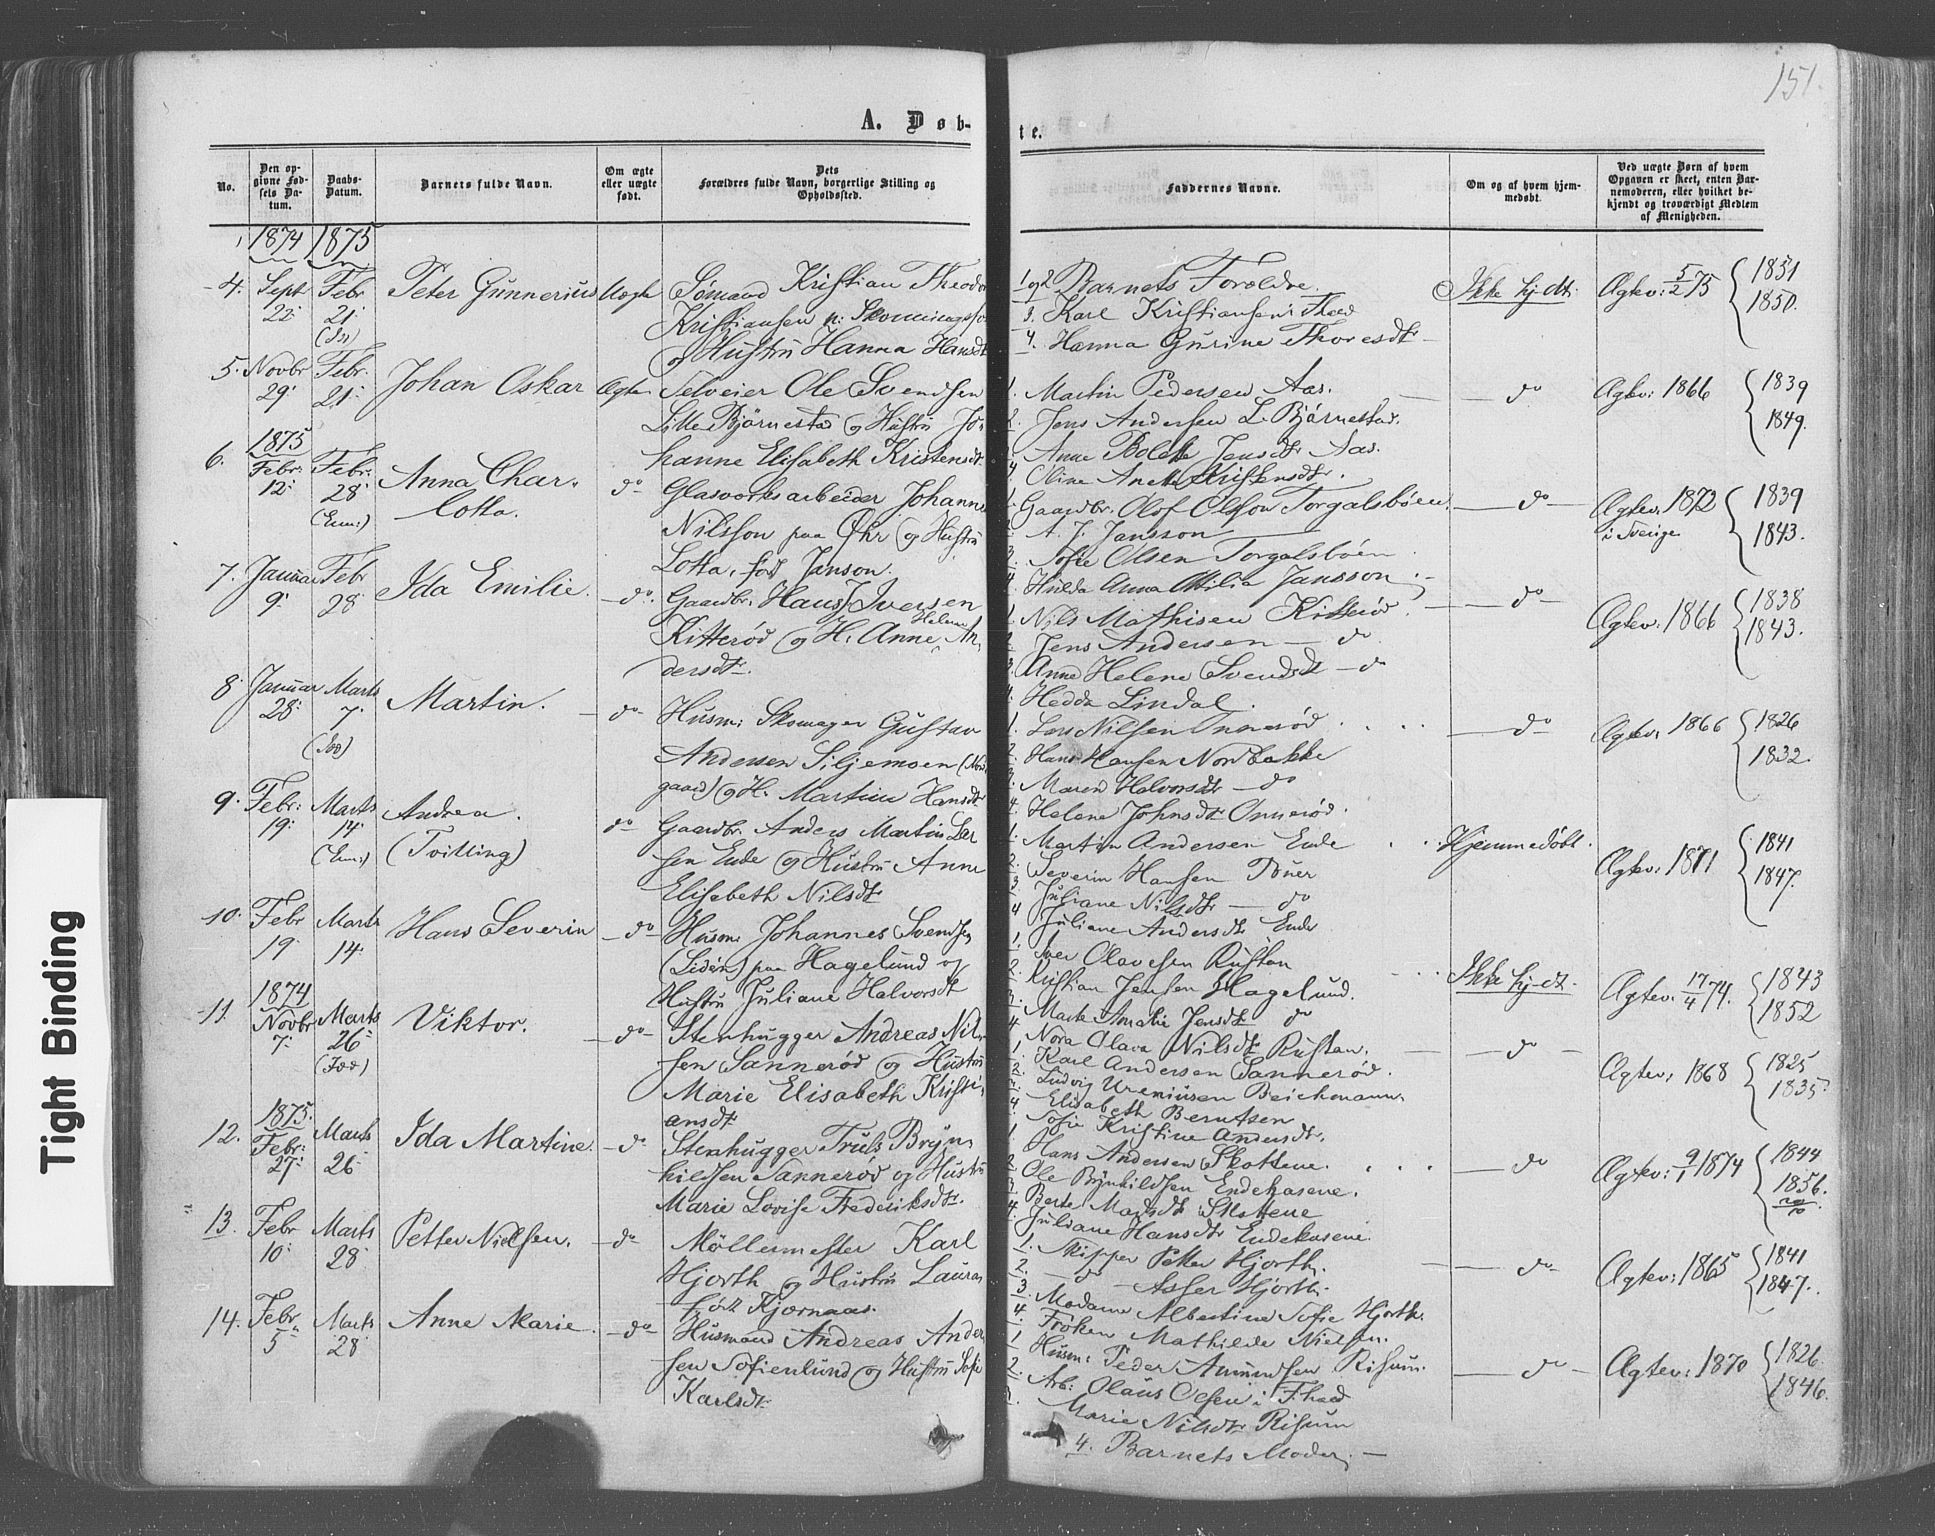 151.
A. Døb-
te.
No.
Den op-
givne Fød-
sels Da-
tum.
Daabs-
Datum.
Barnets fulde Navn.
Om ægte
eller uægte
født.
Dets
Forældres fulde Navn, borgerlige Stilling og
Opholdssted.
Faddernes Navne.
Om og af hvem hjem-
medøbt.
Ved uægte Børn af hvem
Opgaven er skeet, enten Bar-
nemoderen, eller hvilket be-
kjendt og troværdigt Medlem
af Menigheden.
1874 1875
4. Septr 22: Febr 21: Peter Gunnerius Uægte
Sømand Kristian Theodor
Kristiansen
og Hustru Hanna Hansdt
1 og 2 Barnets Forældre.
3. Karl Kristiansen
4. Hanna Gurine Thoresdtr
Ikke hj.dt.
Ægtev: 5/2 75 1851
1850.
5. Novbr 29: Febr. 21: Johan Oskar Ægte
Selveier Ole Svendsen
Lille Bjørnestad og Hustru Jo-
hanne Elisabeth Kristensdt.
1. Martin Pedersen Aas.
2. Jens Andersen L. Bjørnestad.
Anne Jensdtr Aas.
4 Oline Kristensdtr.
do
Ægtev: 1866 1839
1849.
1875
6. Febr: 12: Febr: 28: (Enn:) Anna Char-
lotta. do
Glasværksarbeider Johannes
Nilsson paa Øhr og Hustru
Lotta, fød Janson.
Gaardbr. Olof Olsson Torgalsbøen.
A. J. Jansson
Sofie Olsen Torgalsbøen
Hulda Anna Jansson
do
Ægtev. 1872
i Sverige 1839
1843.
7. Januar 9: Febr 28: Ida Emilie. do.
Gaardbr. Hans J. Iversen
Kitterød og H. Anne Helene An-
dersdt.
1. Nils Mathisen Kitterød.
2 Jens Andersen do
3. Anne Helene Svendsdt do
4. Hedda Lindal.
do
Ægtev: 1866 1838
1843.
8: Januar 28: Marts 7. Martin. do
Husm: Skomager Gustav
Andersen Siljemoen (Nord
gaard) og H. Martine Hansdtr
1. Lars Nilsen Onnerød
2. Hans Hansen Nordbakke
3. Maren Halvorsdtr do
4. Helene Johnsdtr Onnerød.
do
Ægtev: 1866 1826
1832.
9. Febr: 19: Marts 14: (Enn:) Andrea.
(Tvilling) do
Gaardbr. Anders Martin Lar
sen Ende og Hustru Anne
Elisabeth Nilsdt
1. Martin Andersen Ende
2. Severin Hansen
3. Juliane Nilsdtr do
4 Juliane Andersdtr Ende
Hjemmedøbt.
Ægtev: 1871 1841
1847.
10. Febr 19. Marts 14: Hans Severin do
Husm Johannes Svendsen
paa Hagelund og
Hustru Juliane Halvorsdt
1. Iver Olavesen Rustan
2. Kristian Jensen Hagelund.
Amalie Jensdt do
4 Nora Olava Nilsdt Rustan.
Ikke hj.dt.
Ægtev. 17/4 74. 1843
1852
1874
11. Novbr 7: Marts 26 Viktor. do
Stenhugger Andreas Nil-
sen Sannerød og Hustru
Marie Elisabeth Kristi-
ansdt
1. Karl Andersen Sannerød.
2. Ludvig Beichmann
Elisabeth Berntsen
4. Sofie Kristine Andersdtr.
do
Ægtev: 1868 1825
1835.
1875.
12. Febr: 27: Marts 26 Ida Martine do
Stenhugger Truls Bryn-
hildsen Sannerød og Hustru
Marie Lovise Frederiksdt.
1 Hans Andersen Skottene.
2 Ole Brynhildsen Endekasene.
3 Berte Skottene
4. Juliane Hansdtr Endekasene
do
Ægtev: 9/1 1874 1844
1856.
13. Febr 10: Marts 28: Petter Nielsen. do
Møllermester Karl
Hjorth og Hustru Laura
født Kjærnaas.
1. Skipper Petter Hjorth.
2. do Asser Hjorth.
3. Madame Albertine Sofie Hjorth.
4. Frøken Mathilde Nielsen.
do
Ægtev: 1865 1841
1847.
14. Febr. 5 Marts 28: Anne Marie do
Husmand Andreas Ander
sen Sofienlund og Hustru Sofie
Karlsdt.
1 Husm: Peder Amundsen Risum.
2. Arb: Olaus Olsen i Fhald
Marie Nilsdtr Risum
4. Barnets Moder.
do
Ægtev: 1870 1826.
1846.
Tight Binding